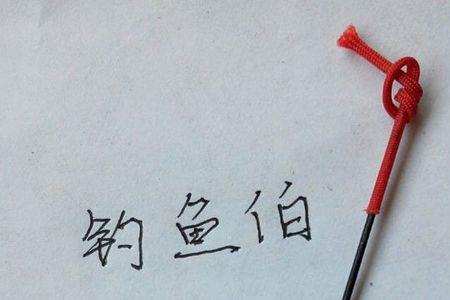 钓鱼伯